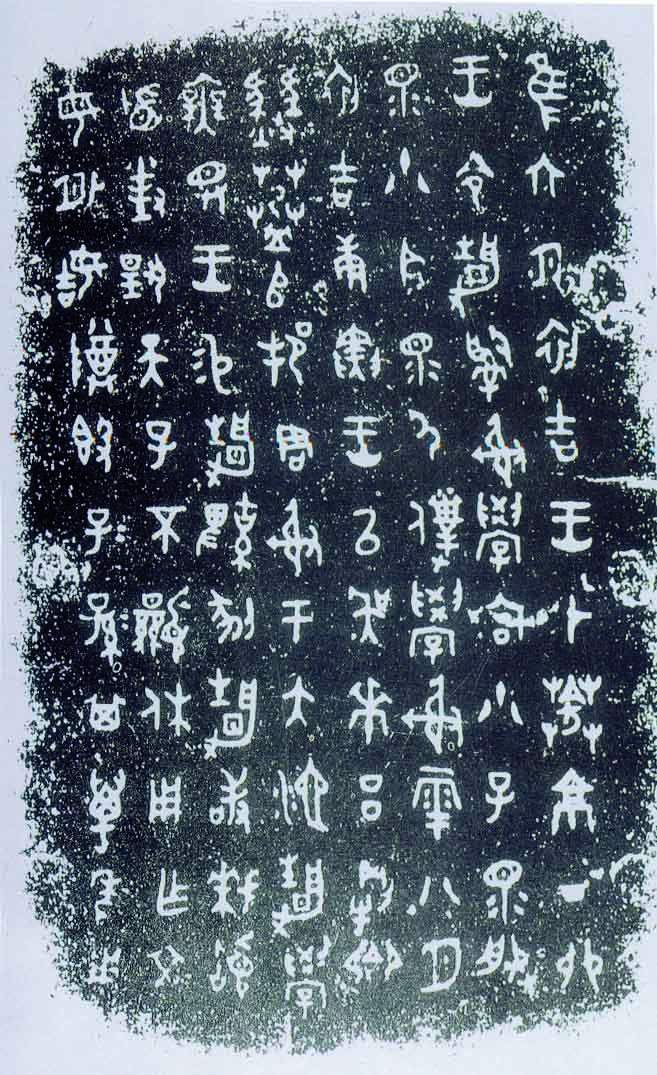 隹六月初吉王才𦱤京丁卯
王令靜𤔲射學宮小子眔服
眔小臣眔尸僕學射雩八月
初吉庚寅王以吳𠦪呂剛𫗅
豳𦱤𠂤邦君射于大池靜學
無斁王易靜鞞剢靜敢拜稽
首對揚天子不顯休用乍文
母外姞尊簋子=孫=其萬年用